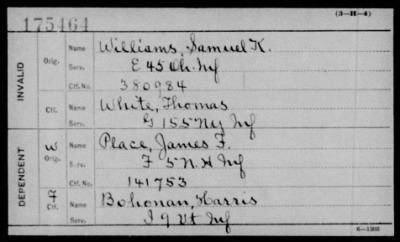 175464
(3-H-4)
INVALID
Orig. Name Williams, Samuel K.
Serv. E 45 Oh. Inf
Ctf. No. 380984
Ctf. Name White, Thomas
Serv. G 155 NY Inf
DEPENDENT
W Orig. Name Place, James F.
Serv. F 5 N.H Inf
Ctf. No. 141753
F Ctf. Name Bohonan, Harris
Serv. I 9 Vt Inf